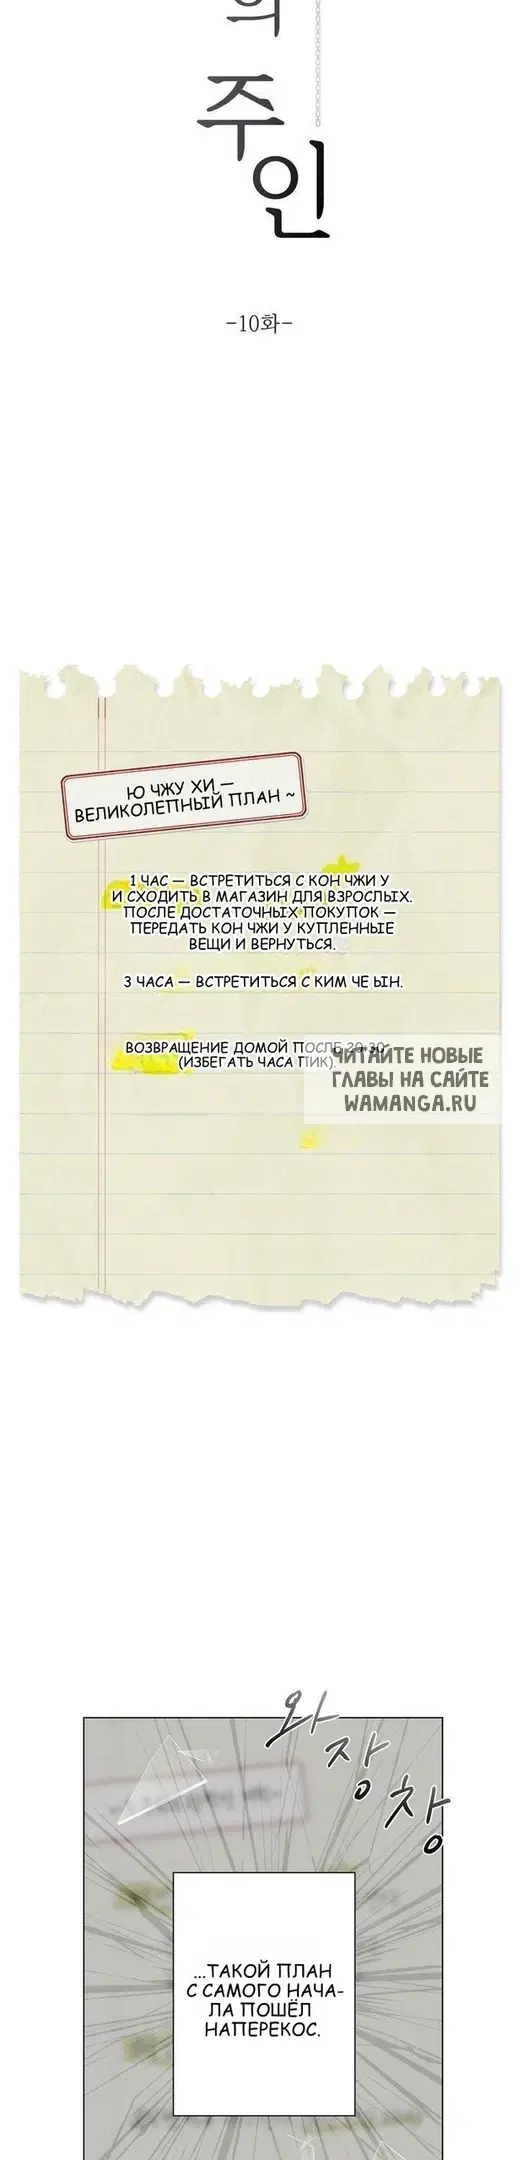 의
주
인
-10화-
Ю ЧЖУ ХИ —
ВЕЛИКОЛЕПНЫЙ ПЛАН ~
1 ЧАС — ВСТРЕТИТЬСЯ С КОН ЧЖИ У
И СХОДИТЬ В МАГАЗИН ДЛЯ ВЗРОСЛЫХ.
ПОСЛЕ ДОСТАТОЧНЫХ ПОКУПОК —
ПЕРЕДАТЬ КОН ЧЖИ У КУПЛЕННЫЕ
ВЕЩИ И ВЕРНУТЬСЯ.
3 ЧАСА — ВСТРЕТИТЬСЯ С КИМ ЧЕ ЫН.
ВОЗВРАЩЕНИЕ ДОМОЙ ПОСЛЕ 20:30
(ИЗБЕГАТЬ ЧАСА ПИК).
ЧИТАЙТЕ НОВЫЕ
ГЛАВЫ НА САЙТЕ
WAMANGA.RU
와
장
창
...ТАКОЙ ПЛАН
С САМОГО НАЧА-
ЛА ПОШЁЛ
НАПЕРЕКОС.